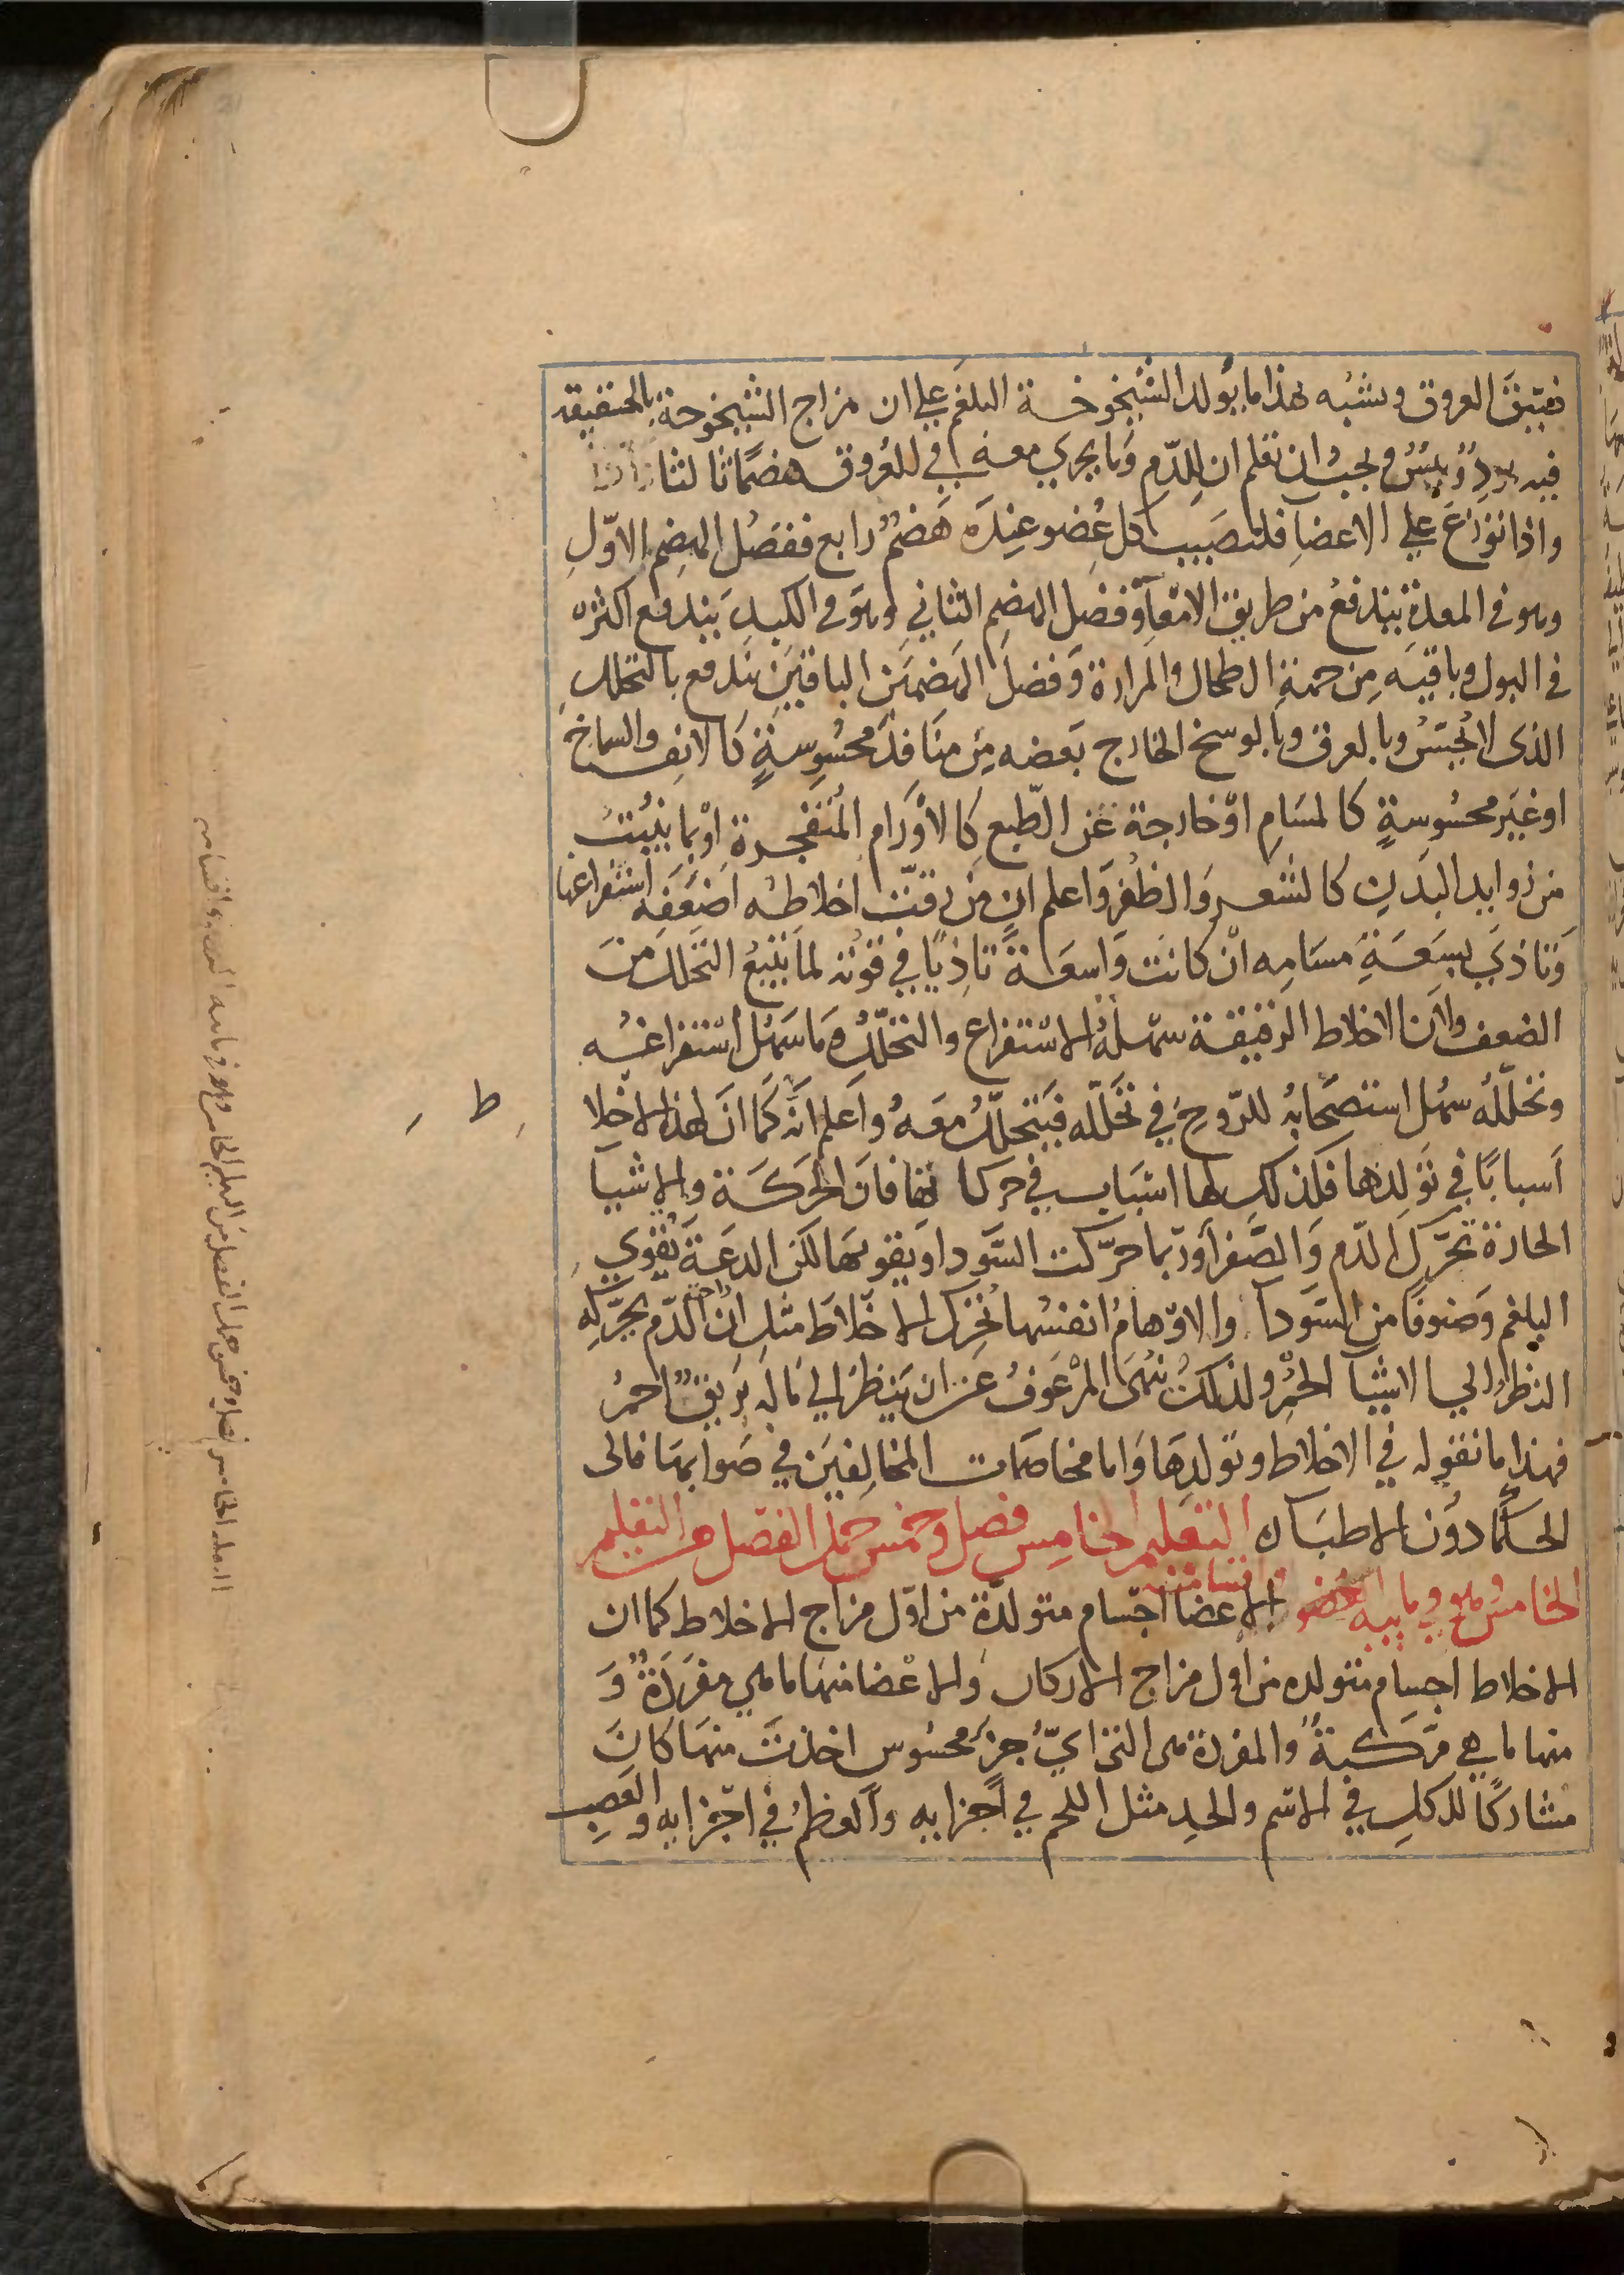 فتيتق العروق ويشبه هذا ما يولد الشيخوخة البلغم علي ان مزاج الشيخوخة بالحقيقه
فيه برد ويبس ويجب ان تعلم ان للدم وما يجري معه في للعروق هضما ثالثا
واذا توزع علي الاعضا فلنصيب كل عضو عنده هضم رابع ففضل الهضم الاول
وهو في المعدة يندفع من طريق الامعآ وفضل الهضم الثاني وهو في الكبد يندفع اكثره
في البول وباقيه من جهة الطحال والمرارة وفضل الهضمين الباقيين يندفع بالتحلل
الذي لا يحس وبالعرق وبالوسخ الخارج بعضه من منافذ محسوسة كالانف والسماخ
او غير محسوسة كالمسام او خارجة عن الطبع كالاورام المتفجرة او بما ينبت
من زوايد البدن كالشعر والظفر واعلم ان من رقت اخلاطه اضعفه استفراغها
وتاذي بسعة مسامه ان كانت واسعة تاذيا في قوته لما يتبع التحلل من
الضعف ولان الاخلاط الرقيقة سهلة الاستفراغ والتحلل وما سهل استفراغه
وتحلله سهل استصحابه للروح في تحلله فيتحلل معه واعلم انه كما ان لهذه الاخلا
ط
اسبابا في تولدها فكذلك لها اسباب في حركاتها فان الحركة والاشيا
الحارة تحرك الدم والصفرا وربما حركت السودا وتقويها لكن الدعة تقوي
البلغم وصنوفا من السودا والاوهام انفسها تحرك الاخلاط مثل ان الدم يحركه
النظر الي الاشيا الحمر ولذلك ينهي المرعوف عن ان ينظر الي ما له بريق احمر
فهذا ما نقوله في الاخلاط وتولدها واما مخاصمات المخالفين في صوابها فالي
الحكما دون الاطبا التعليم الخامس فصل وخمس جمل الفصل من التعليم
الخامس وهو في ماهيه العضو واقسامه الاعضا اجسام متولدة من اول مزاج الاخلاط كما ان
الاخلاط اجسام متولده من اول مزاج الاركان والاعضا منها ما هي مفردة و
منها ما هي مركبة والمفردة هي التي اي جز محسوس اخذت منها كان
مشاركا للكل في الاسم والحد مثل اللحم في اجزايه والعظم في اجزايه والعصب